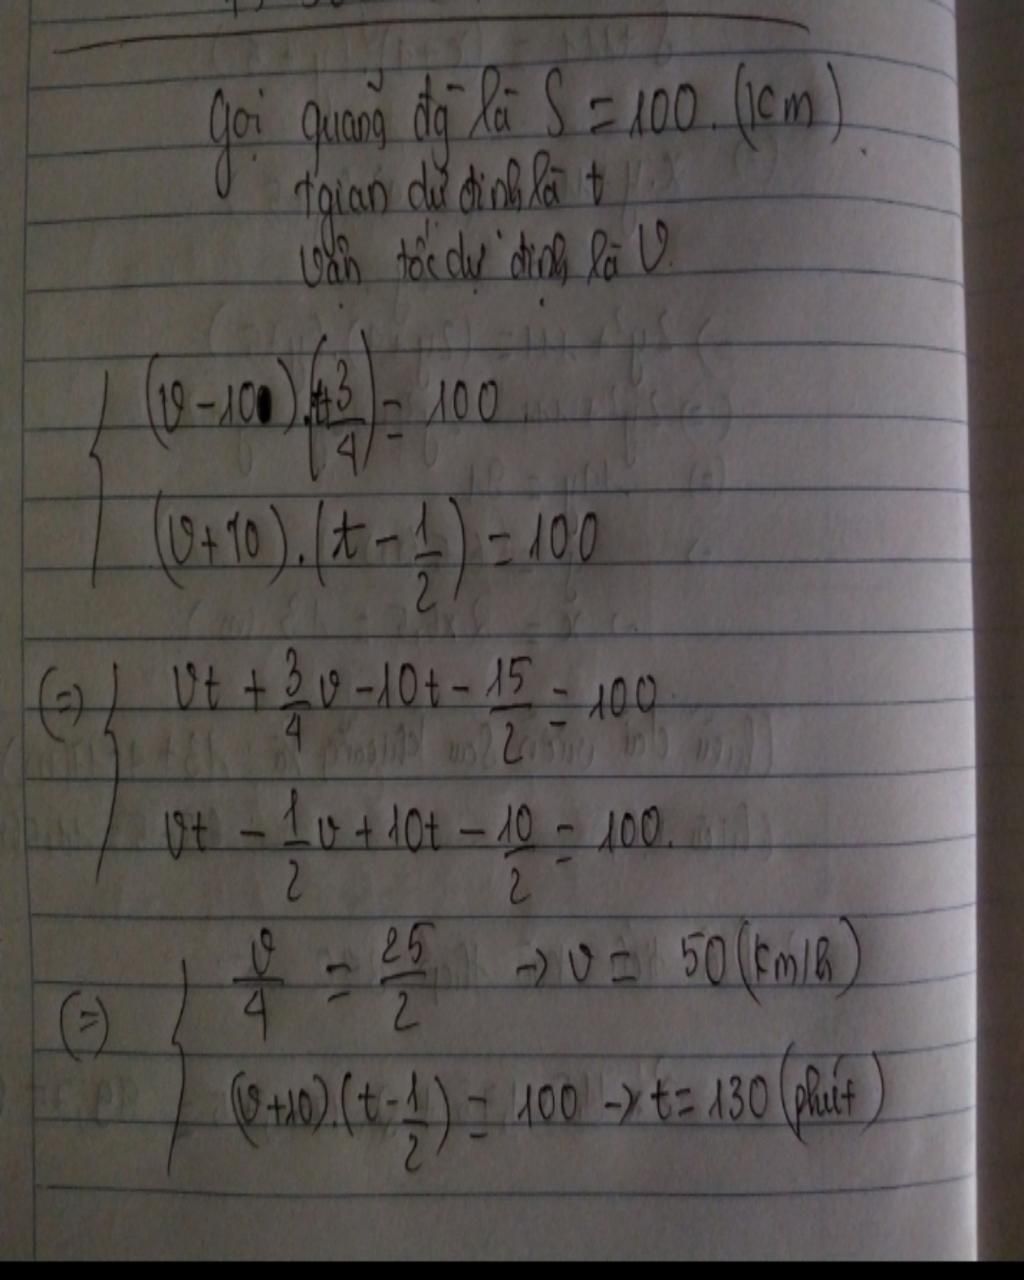 gọi quãng đg là S = 100. (km)
tgian dự định là t
vận tốc dự định là v.
(v - 10).(t + 3/4) = 100
(v + 10).(t - 1/2) = 100
(=) vt + 3/4 v - 10t - 15/2 = 100
vt - 1/2 v + 10t - 10/2 = 100.
(=) v/4 = 25/2 → v = 50 (km/h)
(v + 10).(t - 1/2) = 100 → t = 130 (phút)